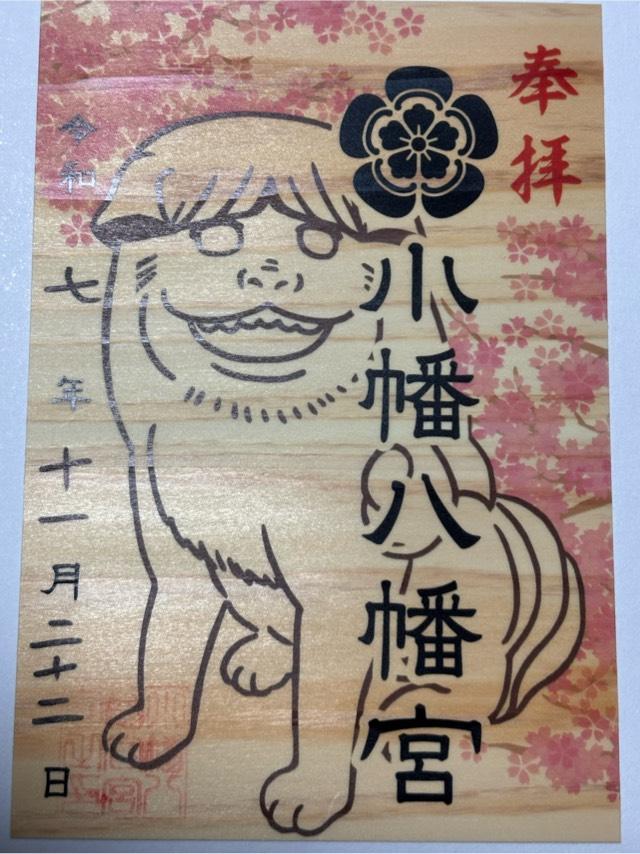 奉拝
小幡八幡宮
令和七年十一月二十二日